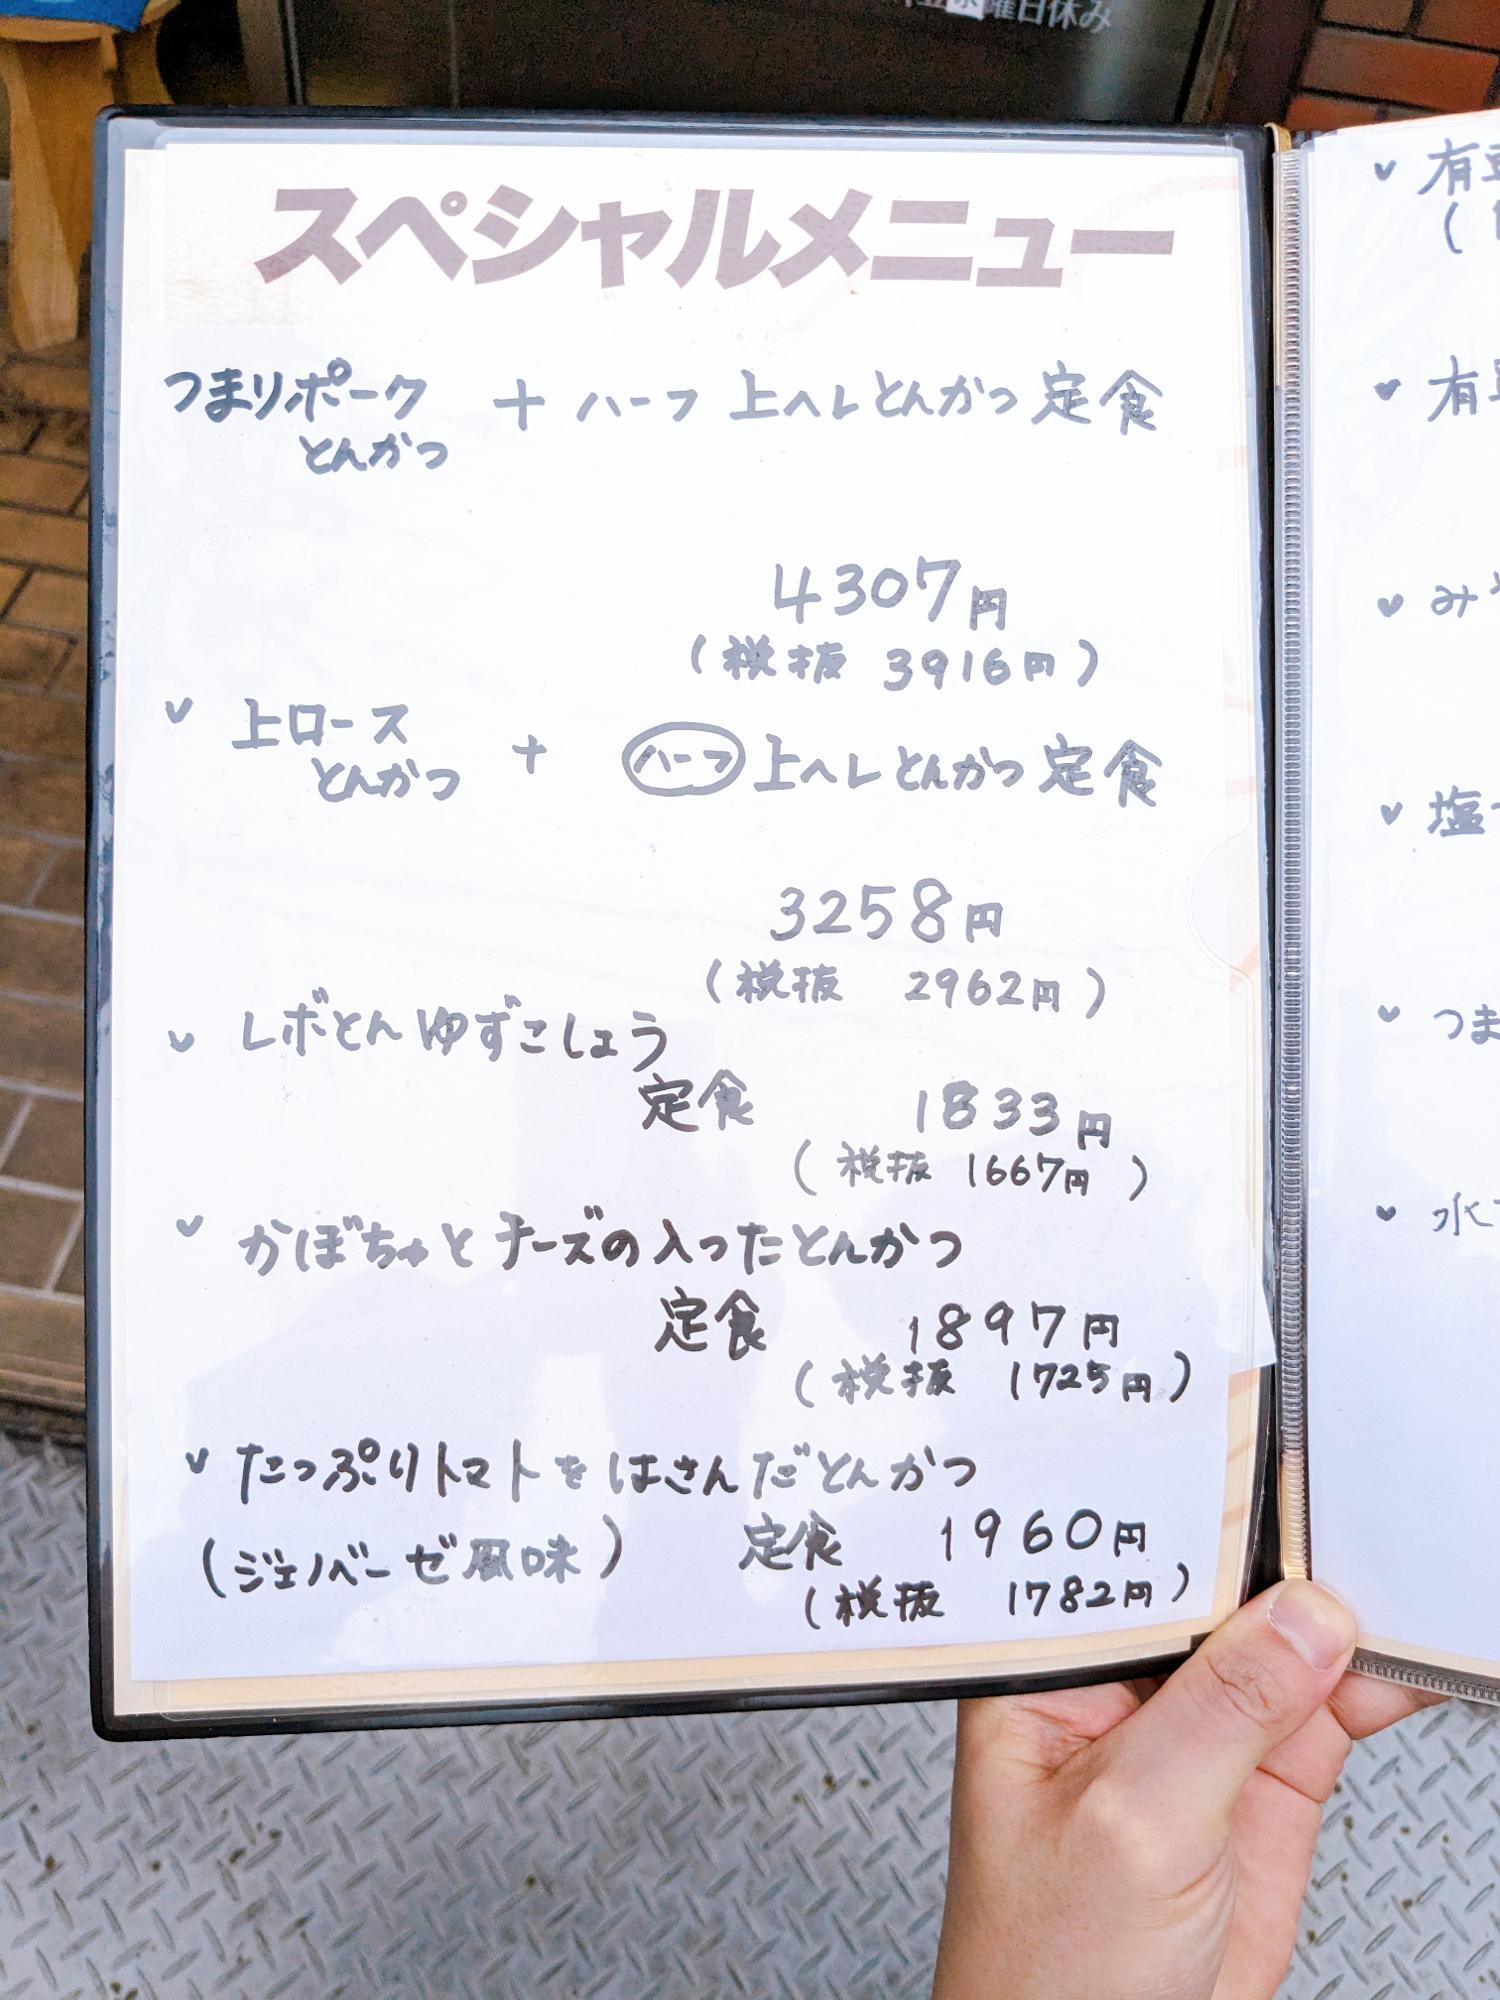 曜日休み
スペシャルメニュー
つまりポーク + ハーフ 上ヘレとんかつ定食
とんかつ
4307円
(税抜 3916円)
上ロース + ハーフ 上ヘレとんかつ定食
とんかつ
3258円
(税抜 2962円)
レボとんゆずこしょう
定食 1833円
(税抜 1667円)
かぼちゃとチーズの入ったとんかつ
定食 1897円
(税抜 1725円)
たっぷりトマトをはさんだとんかつ
(ジェノベーゼ風味) 定食 1960円
(税抜 1782円)
有
有
み
塩
つま
水